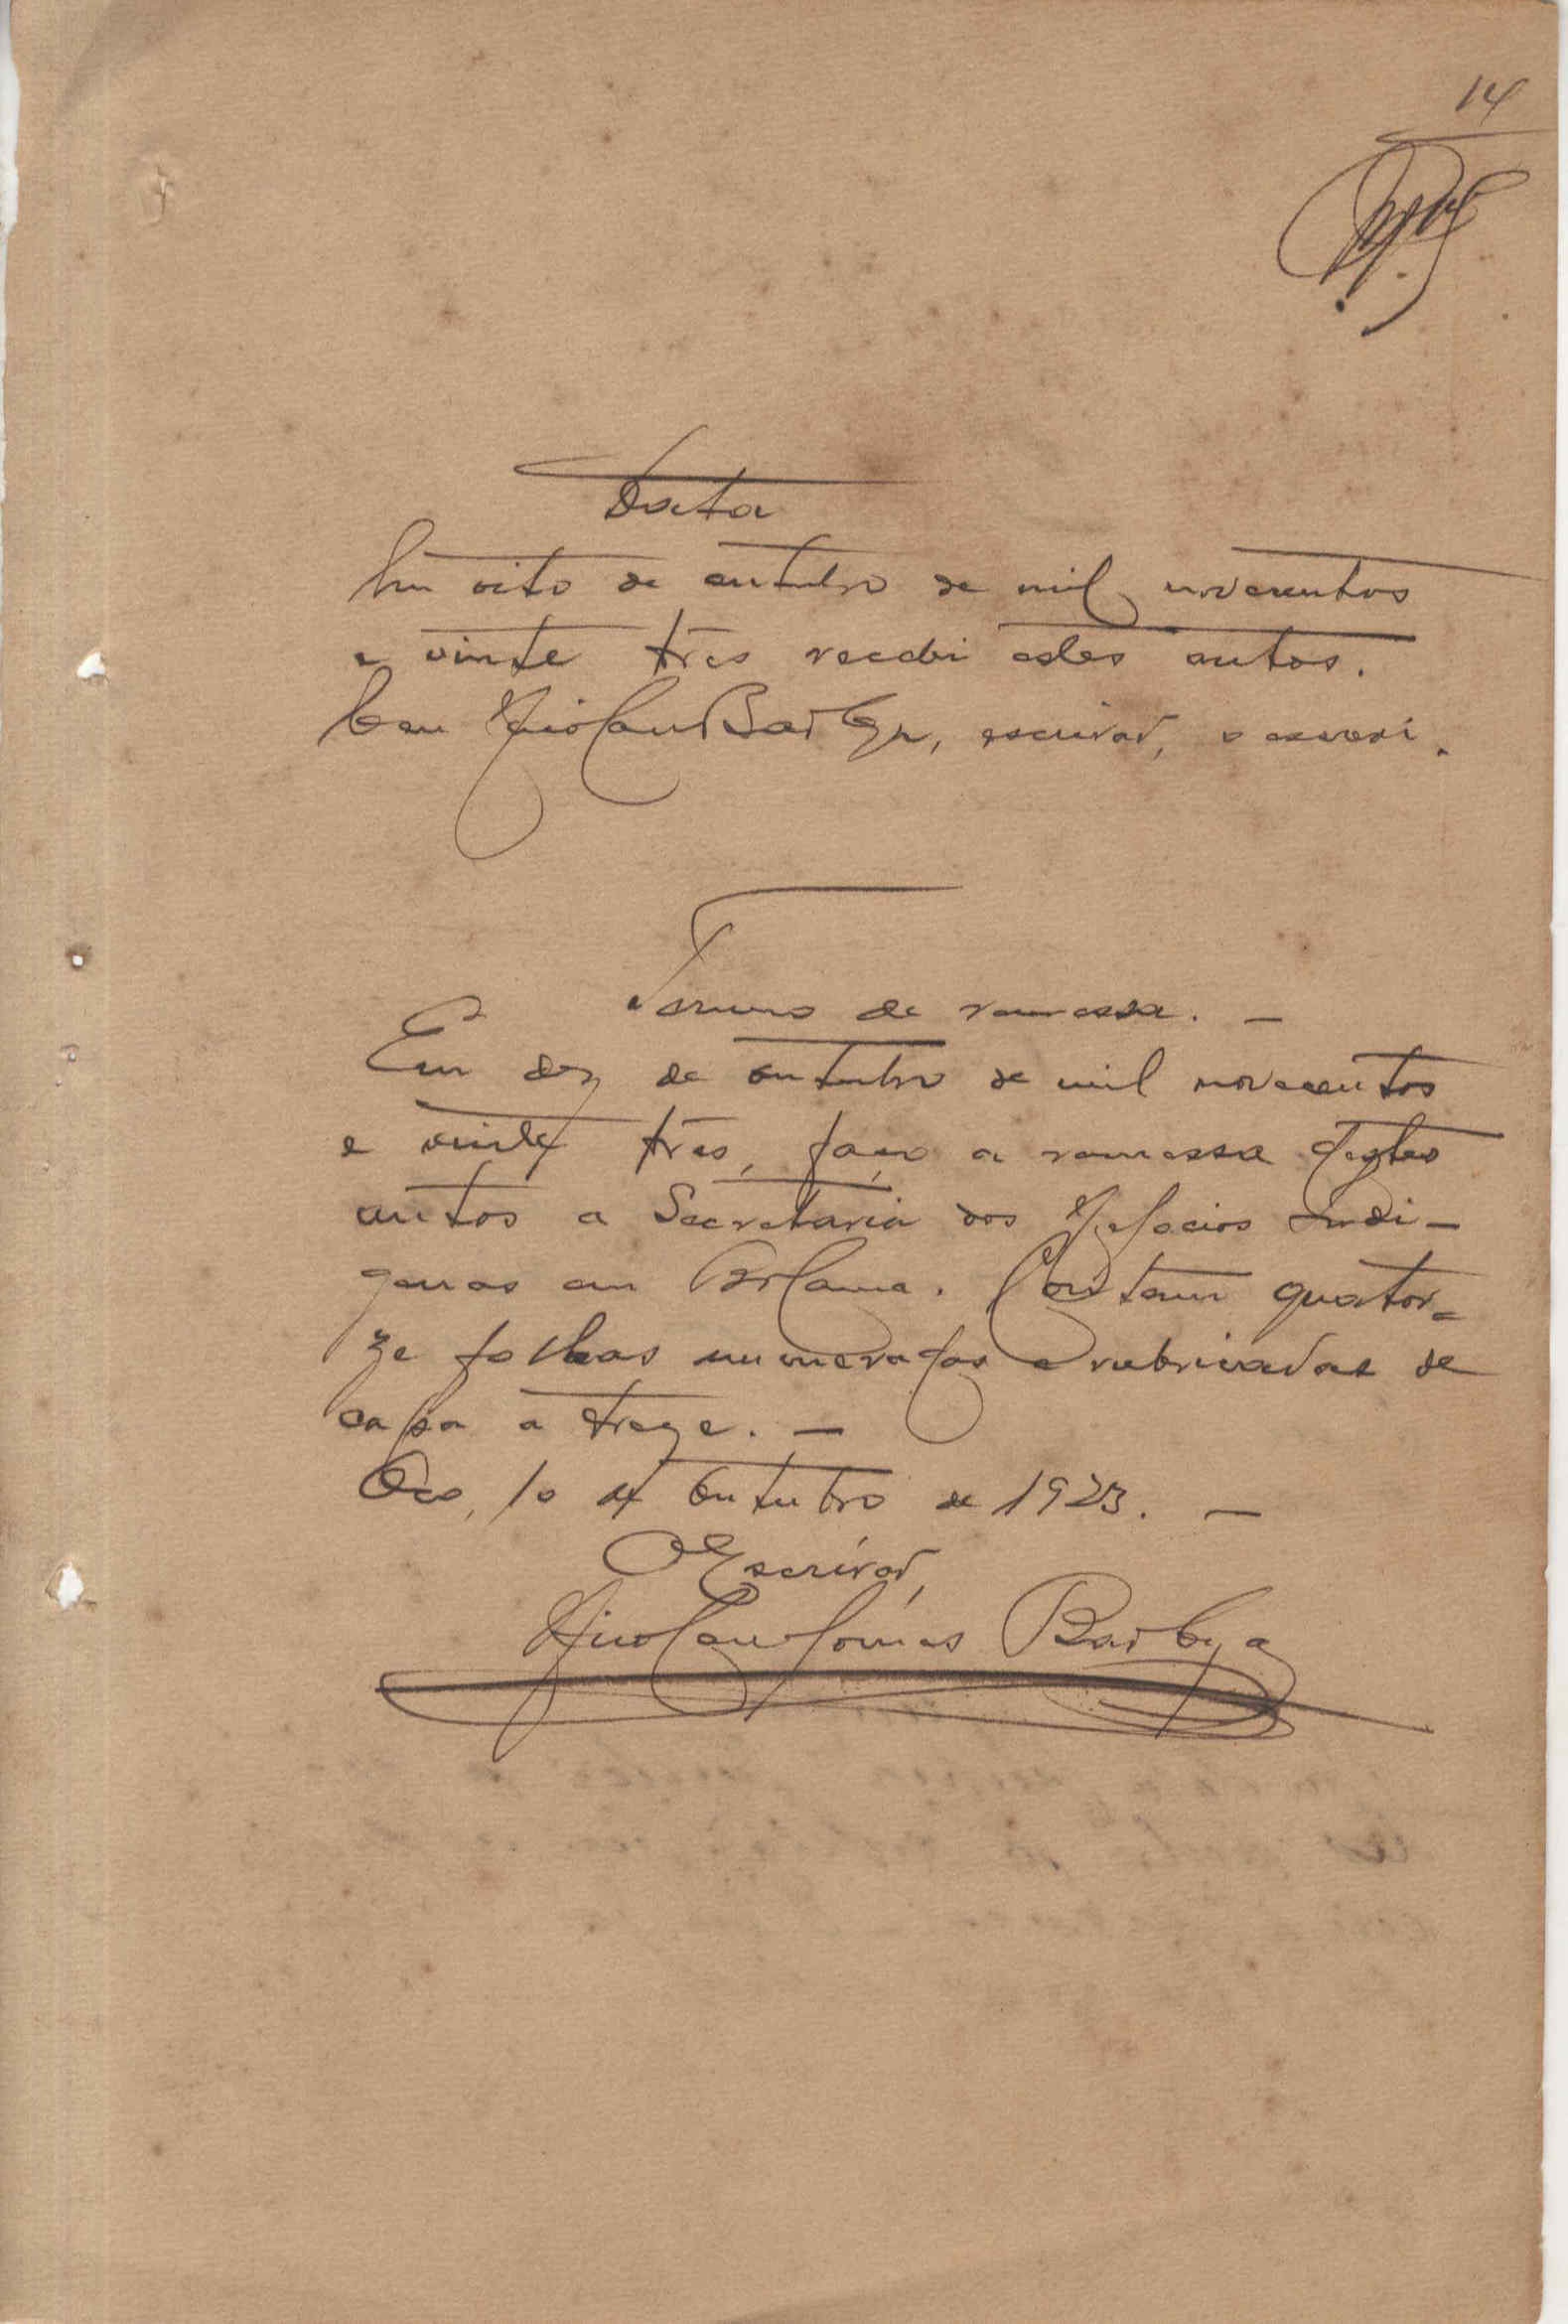 14
Data
Em oito de outubro de mil novecentos
e vinte três recebi estes autos.
Eu Nicolau Barbosa, escrivão, o escrevi.
Termo de remessa. —
Em dez de outubro de mil novecentos
e vinte três, faço a remessa destes
autos a Secretaria dos Negocios Indi-
genas em Bolama. Contem quator-
ze folhas numeradas e rubricadas de
capa a treze. —
10 de Outubro de 1923. —
O Escrivão,
Nicolau Gomes Barbosa